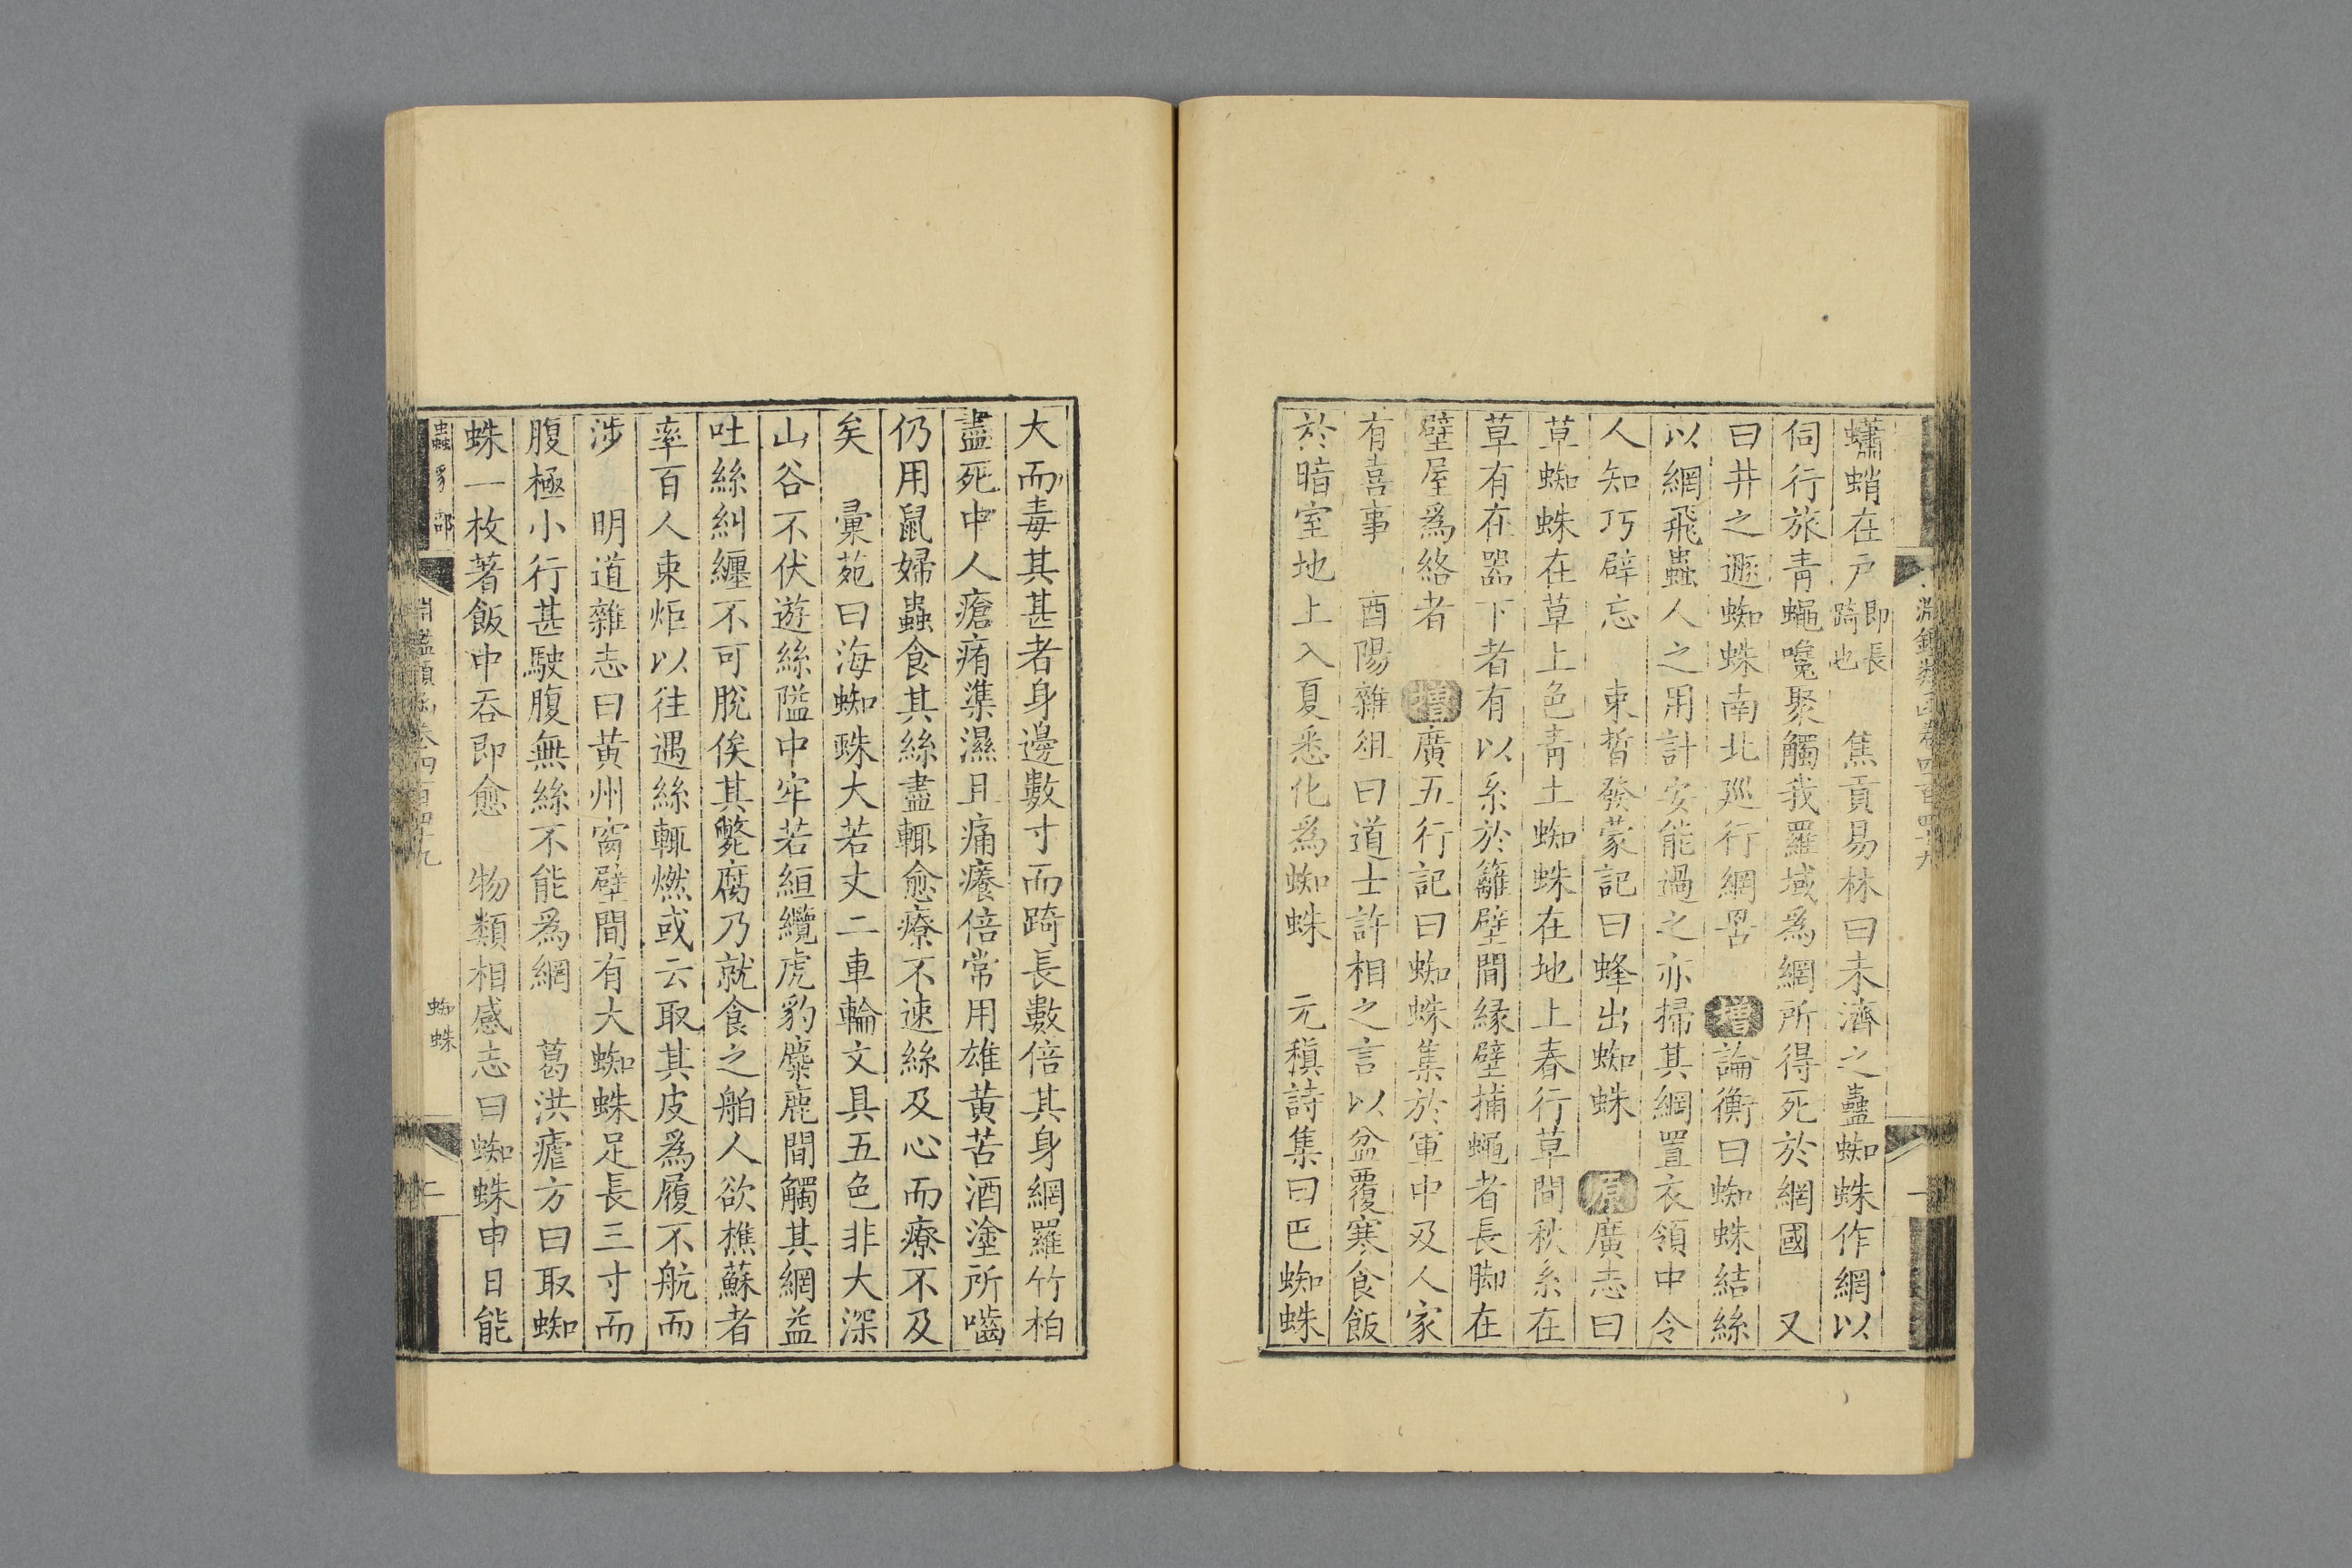 淵鑑類函卷四百四十九
一
蠨蛸在戶即長踦也　焦貢易林曰未濟之蠱蜘蛛作網以
伺行旅青蠅嚵聚觸我羅域爲網所得死於網國　又
曰井之遯蜘蛛南北廵行網罟　增論衡曰蜘蛛結絲
以網飛蟲人之用計安能過之亦掃其網置衣領中令
人知巧辟忘　束晳發蒙記曰蜂出蜘蛛　原廣志曰
草蜘蛛在草上色靑土蜘蛛在地上春行草間秋系在
草有在噐下者有以系於籬壁間緣壁捕蠅者長脚在
壁屋爲絡者　增廣五行記曰蜘蛛集於軍中及人家
有喜事　酉陽雜俎曰道士許相之言以盆覆寒食飯
於暗室地上入夏悉化爲蜘蛛　元稹詩集曰巴蜘蛛
大而毒其甚者身邊數寸而踦長數倍其身網羅竹柏
盡死中人瘡痏準濕且痛癢倍常用雄黃苦酒塗所嚙
仍用鼠婦蟲食其絲盡輒愈療不速絲及心而療不及
矣　彚苑曰海蜘蛛大若丈二車輪文具五色非大深
山谷不伏遊絲隘中牢若絙纜虎豹麋鹿間觸其網益
吐絲糾纒不可脫俟其斃腐乃就食之舶人欲樵蘇者
率百人束炬以往遇絲輒燃或云取其皮爲履不航而
涉　明道雜志曰黃州窗壁間有大蜘蛛足長三寸而
腹極小行甚駛腹無絲不能爲網　葛洪瘧方曰取蜘
蛛一枚著飯中吞即愈　物類相感志曰蜘蛛申日能
蟲豸部
淵鑑類函卷四百四十九
蜘蛛
二